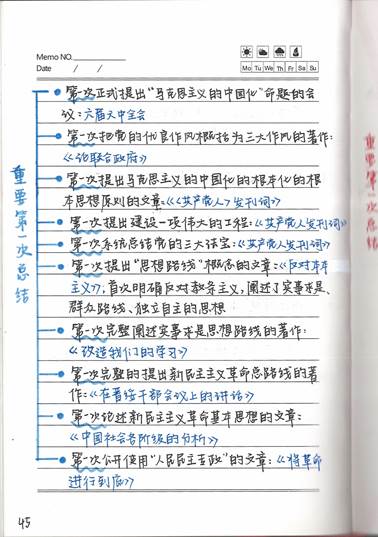 Memo NO.
Date / /
Mo Tu We Th Fr Sa Su
重要第一次总结
第一次正式提出“马克思主义的中国化”命题的会
议：六届六中全会
第一次把党的优良作风概括为三大作风的著作：
《论联合政府》
第一次提出马克思主义的中国化的根本化的根
本思想原则的文章：《《共产党人》发刊词》
第一次提出建设一项伟大的工程：《共产党人发刊词》
第一次系统总结党的三大法宝：《共产党人发刊词》
第一次提出“思想路线”概念的文章：《反对本本
主义》，首次明确反对教条主义，阐述了实事求是、
群众路线、独立自主的思想
第一次完整阐述实事求是思想路线的著作：
《改造我们的学习》
第一次完整的提出新民主主义革命总路线的著
作：《在晋绥干部会议上的讲话》
第一次论述新民主主义革命基本思想的文章：
《中国社会各阶级的分析》
第一次公开使用“人民民主专政”的文章：《将革命
进行到底》
45
重要第一次总结